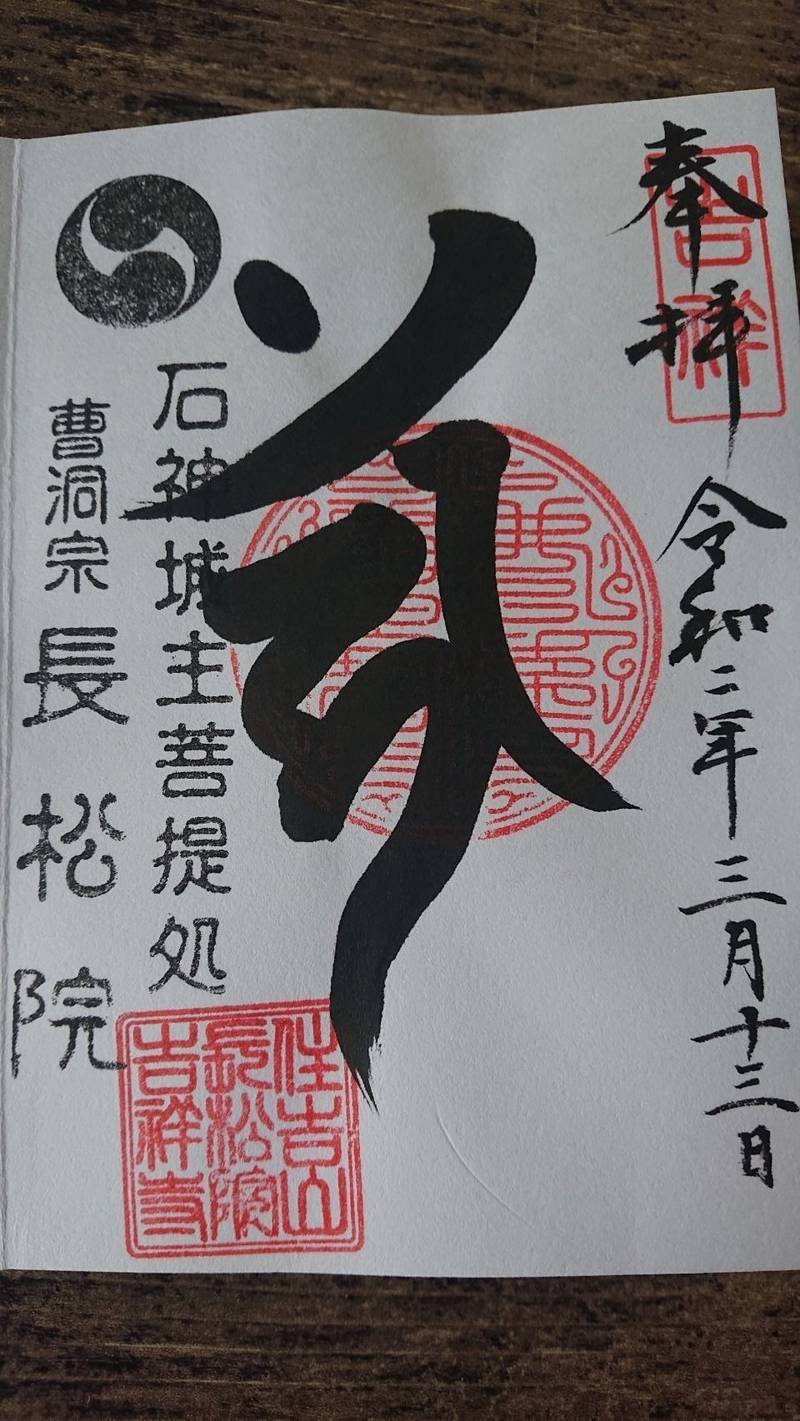 吉祥
奉拝 令和二年三月十三日
石神城主菩提処
曹洞宗 長松院
住吉山
長松院
吉祥寺